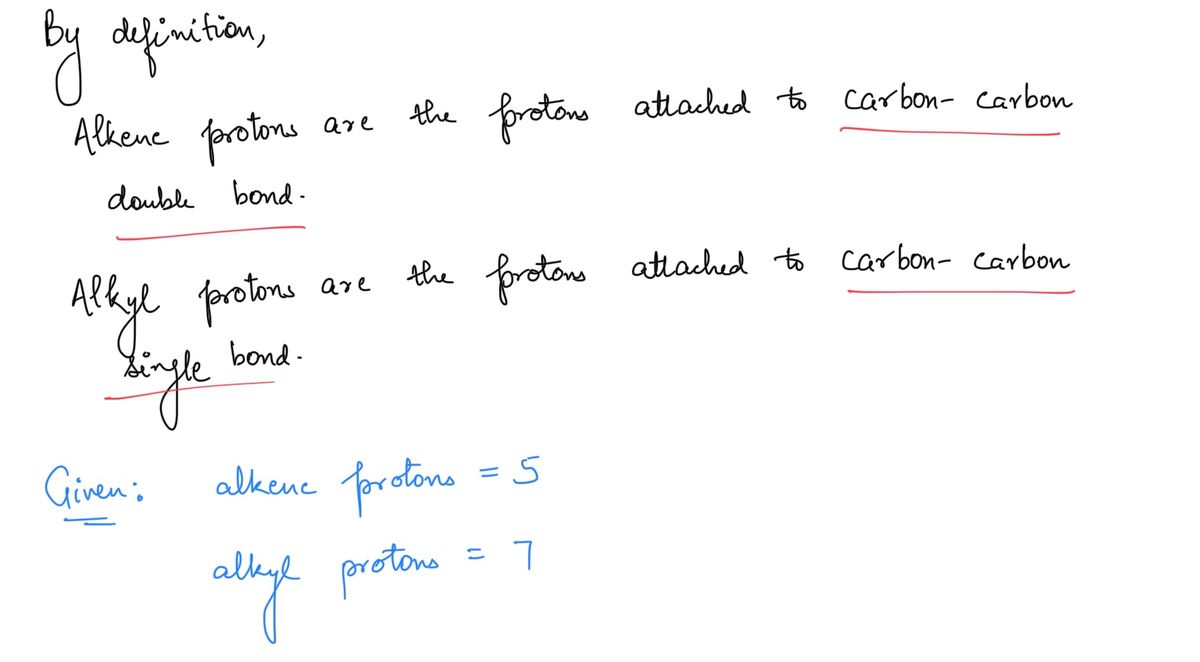 By definition,
Alkene protons are the protons attached to carbon-carbon
double bond.
Alkyl protons are the protons attached to carbon-carbon
single bond.
Given: alkene protons = 5
alkyl protons = 7